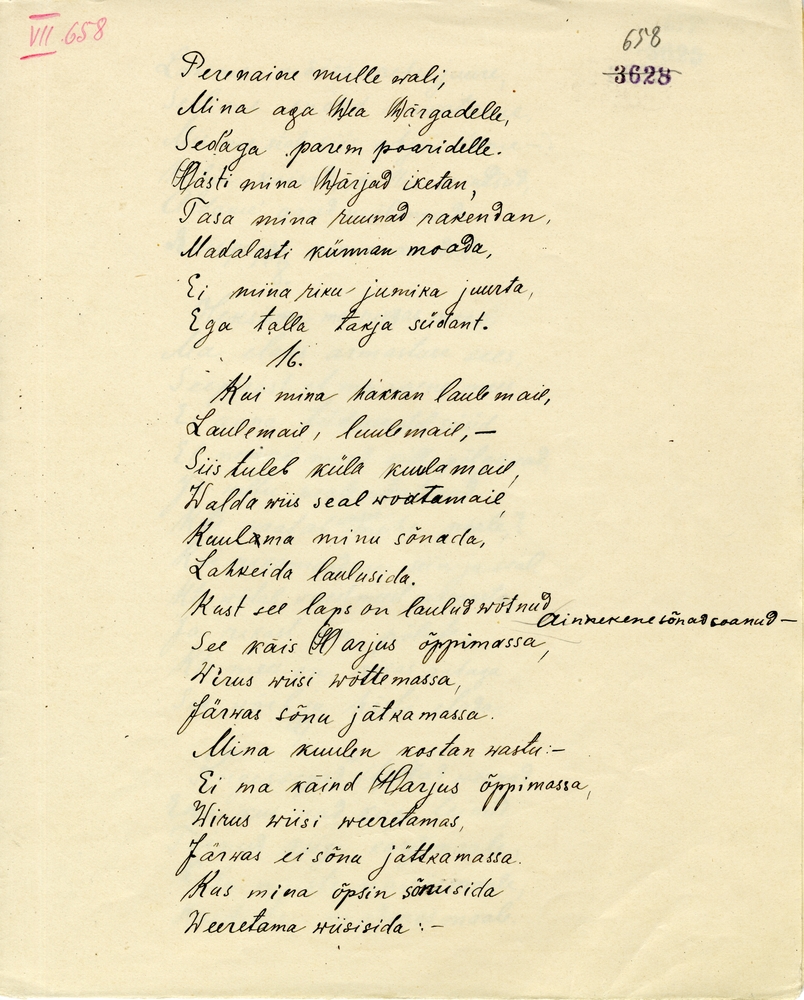 VII 658
658
3628
Perenaine mulle wali,
Mina aga Hea Härgadelle,
Sedaga parem paaridelle.
Hästi mina Härjad iketan,
Tasa mina ruunad rakendan,
Madalasti künnan maada,
Ei mina riku jumika juurta,
Ega talla takja südant.
16.
Kui mina hakkan laulemaie,
Laulemaie, luulemaie, —
Siis tuleb küla kuulamaie,
Walda wiis seal waatamaie,
Kuulama minu sõnada,
Lahkeida laulusida.
Kust see laps on laulud wõtnud
Ainukene sõnad saanud —
See käis Harjus õppimassa,
Wirus wiisi wõttemassa,
Järwas sõnu jätkamassa.
Mina kuulen kostan wastu:—
Ei ma käind Harjus õppimassa,
Wirus wiisi weeretamas,
Järwas ei sõnu jätkamassa.
Kus mina õpsin sõnusida
Weeretama wiisisida :—